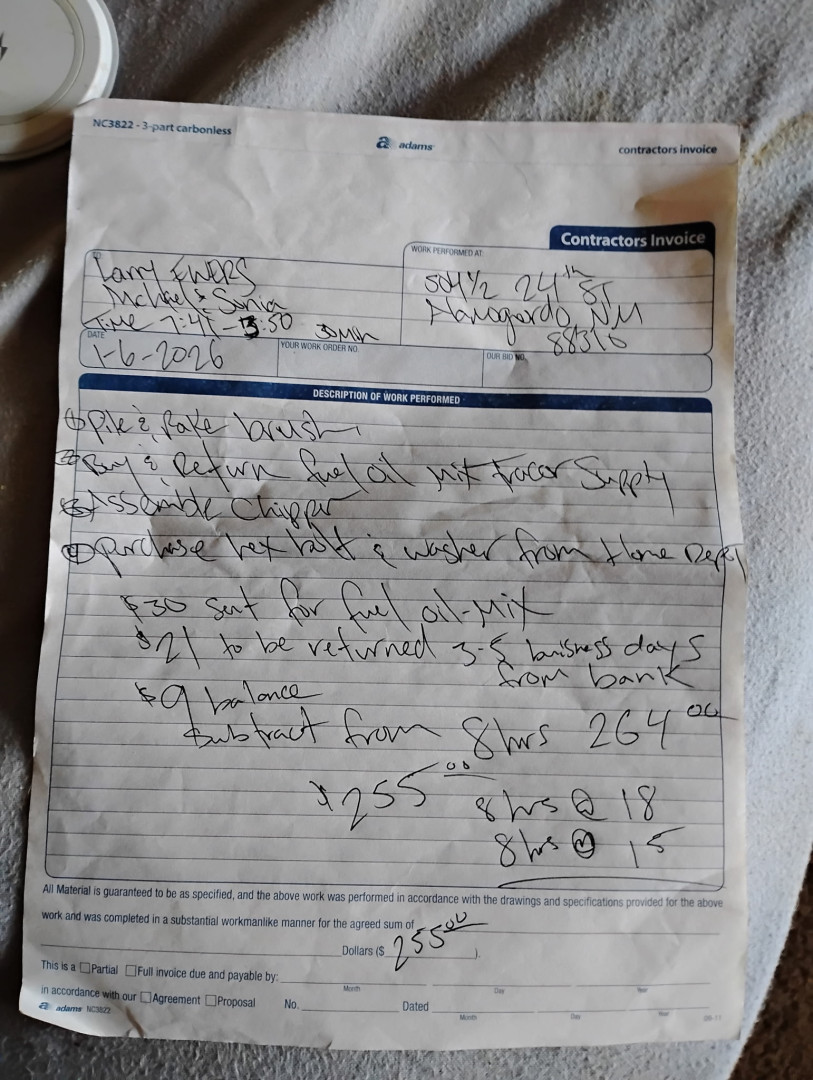 NC3822 - 3-part carbonless
a adams
contractors invoice
Contractors Invoice
TO
Larry EWERS
Michael & Sonia
Time 7:41 - 3:50 30 Min
WORK PERFORMED AT:
504 1/2 24th ST
Alamogordo NM
88310
DATE
1-6-2026
YOUR WORK ORDER NO.
OUR BID NO.
DESCRIPTION OF WORK PERFORMED
① Pile & Rake brush
② Buy & Return fuel oil mix Tracor Supply
③ Assemble Chipper
④ purchase hex bolt & washer from Home Depot
$30 sent for fuel oil-mix
$21 to be returned 3-5 buisness days
from bank
$9 balance
subtract from 8 hrs 264 00
$255 00
8 hrs @ 18
8 hrs @ 15
All Material is guaranteed to be as specified, and the above work was performed in accordance with the drawings and specifications provided for the above
work and was completed in a substantial workmanlike manner for the agreed sum of
Dollars ($ 255 00 ).
This is a Partial Full invoice due and payable by:
Month Day Year
in accordance with our Agreement Proposal No. Dated
Month Day Year
a adams NC3822